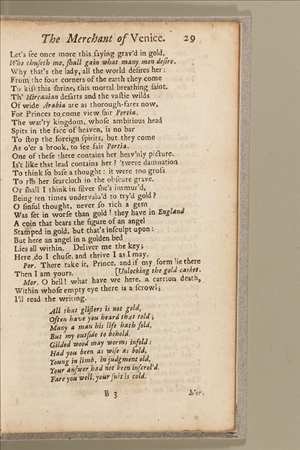 The Merchant of Venice. 29
Let's see once more this saying grav'd in gold,
Who chuseth me, shall gain what many men desire.
Why that's the lady, all the world desires her:
From the four corners of the earth they come
To kiss this shrine, this mortal breathing saint.
Th' Hircanian desarts and the vastie wilds
Of wide Arabia are as thorough-fares now,
For Princes to come view fair Portia.
The wat'ry kingdom, whose ambitious head
Spits in the face of heaven, is no bar
To stop the foreign spirits, but they come
As o'er a brook, to see fair Portia.
One of these three contains her heav'nly picture.
Is't like that lead contains her? 'twere damnation
To think so base a thought: it were too gross
To rib her searcloth in the obscure grave.
Or shall I think in silver she's immur'd,
Being ten times undervalu'd to try'd gold?
O sinful thought, never so rich a gem
Was set in worse than gold! they have in England
A coin that bears the figure of an angel
Stamped in gold, but that's insculpt upon:
But here an angel in a golden bed
Lies all within. Deliver me the key;
Here do I chuse, and thrive I as I may.
Por. There take it, Prince, and if my form lie there
Then I am yours. [Unlocking the gold casket.
Mor. O hell! what have we here, a carrion death,
Within whose empty eye there is a scrowl;
I'll read the writing.
All that glisters is not gold,
Often have you heard that told;
Many a man his life hath sold,
But my outside to behold.
Gilded wood may worms infold:
Had you been as wise as bold,
Young in limb, in judgment old,
Your answer had not been inscrol'd.
Fare you well, your suit is cold.
B 3 Mor.